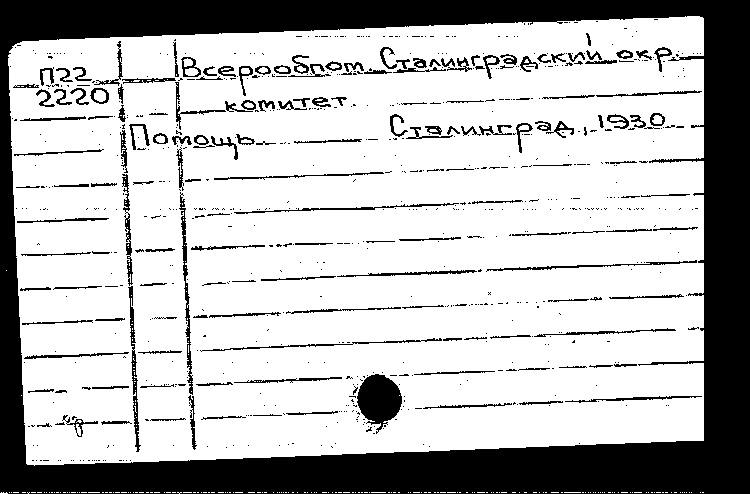 П22 Всерообпом. Сталинградский окр.
2220 комитет.
Помощь Сталинград, 1930.